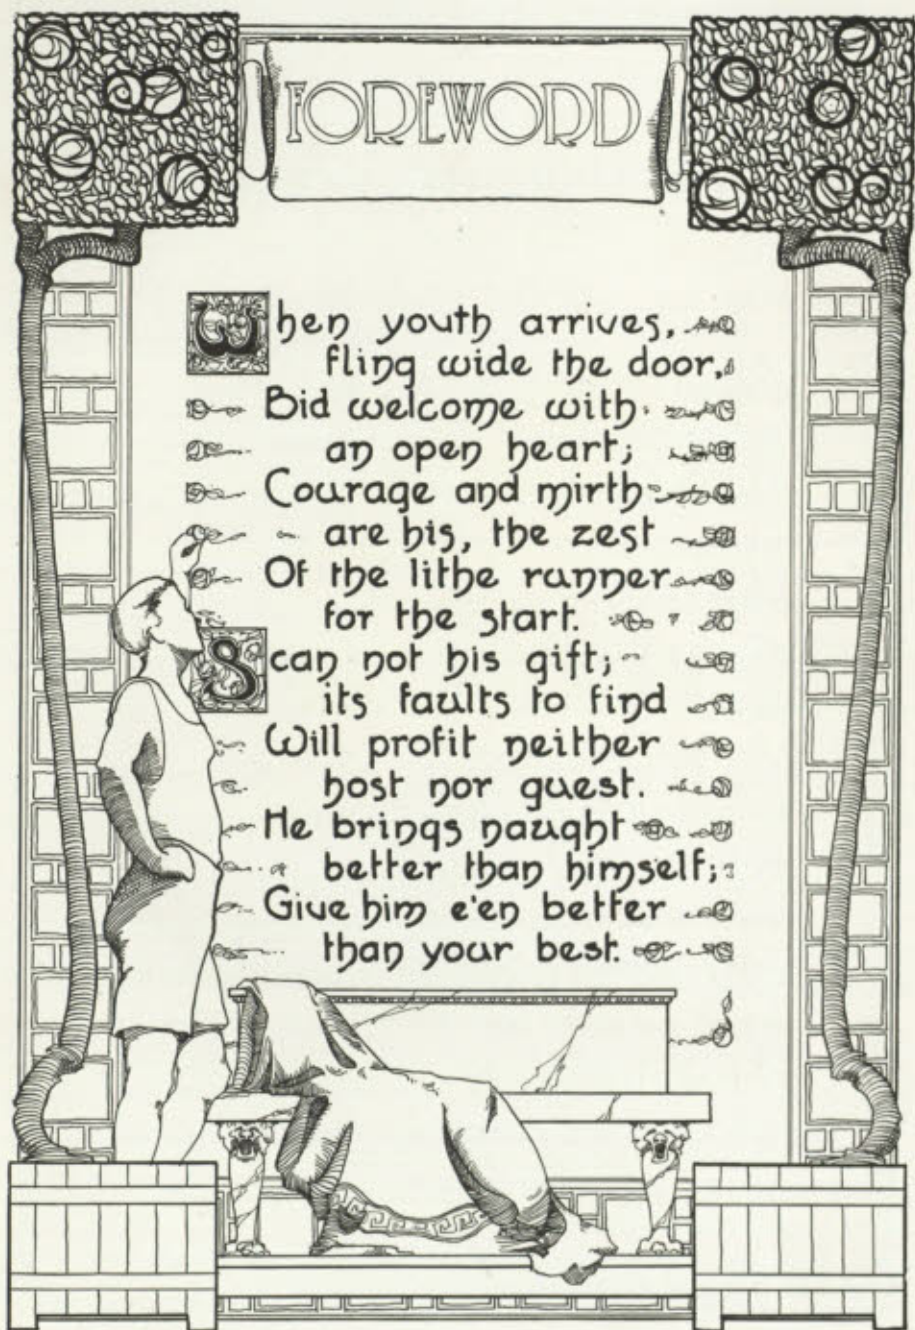 FOREWORD
When youth arrives,
fling wide the door,
Bid welcome with
an open heart;
Courage and mirth
are his, the zest
Of the lithe runner
for the start.
Scan not his gift;
its faults to find
Will profit neither
host nor guest.
He brings naught
better than himself;
Give him e'en better
than your best.